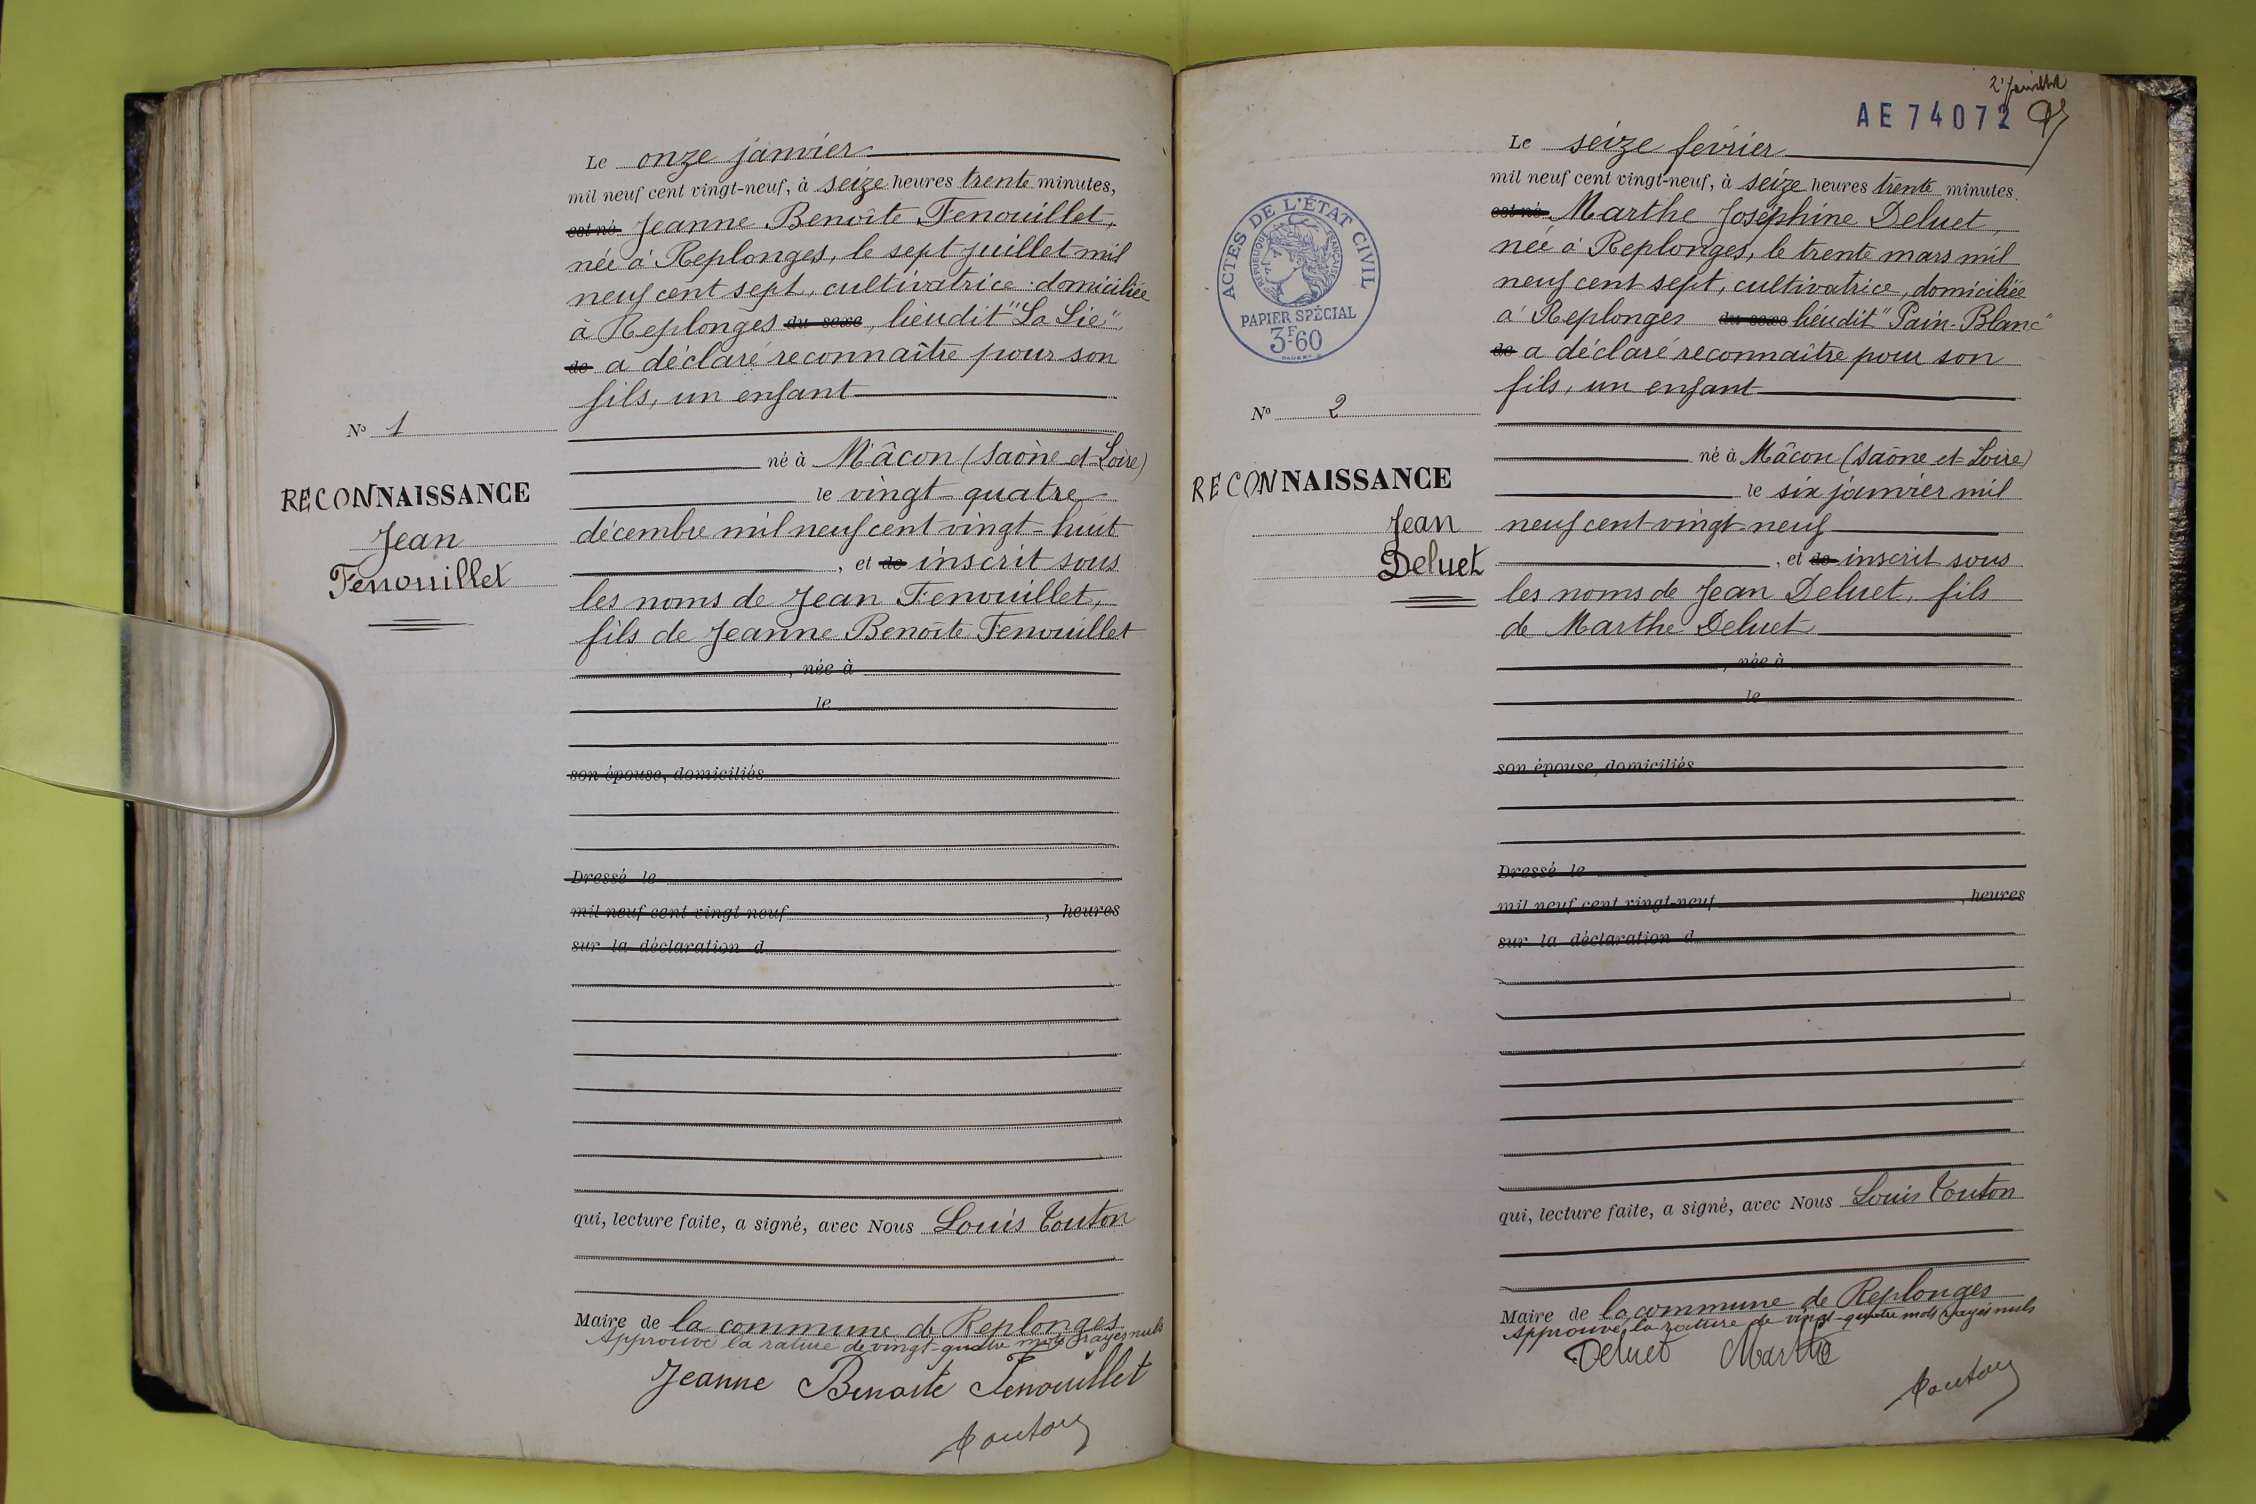 Le onze janvier
mil neuf cent vingt-neuf, à seize heures trente minutes,
est né Jeanne Benoîte Fenouillet,
née à Replonges, le sept juillet mil
neuf cent sept, cultivatrice domiciliée
à Replonges du sexe, lieudit "La Lie"
de a déclaré reconnaître pour son
fils, un enfant
No 1
né à Mâcon (Saône et Loire)
RECONNAISSANCE
le vingt-quatre
Jean
décembre mil neuf cent vingt-huit
Fenouillet
, et de inscrit sous
les noms de Jean Fenouillet,
fils de Jeanne Benoîte Fenouillet
, née à
le
son épouse, domiciliés
Dressé le
mil neuf cent vingt-neuf , heures
sur la déclaration d
qui, lecture faite, a signé, avec Nous Louis Touton
Maire de la commune de Replonges
Approuvé la rature de vingt-quatre mots rayés nuls
Jeanne Benoite Fenouillet
Touton
AE 74072
Le seize février
mil neuf cent vingt-neuf, à seize heures trente minutes.
est né Marthe Joséphine Deluet,
née à Replonges, le trente mars mil
neuf cent sept, cultivatrice, domiciliée
à Replonges du sexe lieudit "Pain-Blanc"
de a déclaré reconnaître pour son
fils, un enfant
ACTES DE L'ÉTAT CIVIL
RÉPUBLIQUE FRANÇAISE
PAPIER SPÉCIAL
3F60
No 2
né à Mâcon (Saône et Loire)
RECONNAISSANCE
le six janvier mil
Jean
neuf cent vingt-neuf
Deluet
, et de inscrit sous
les noms de Jean Deluet, fils
de Marthe Deluet
, née à
le
son épouse, domiciliés
Dressé le
mil neuf cent vingt-neuf , heures
sur la déclaration d
qui, lecture faite, a signé, avec Nous Louis Touton
Maire de la commune de Replonges
Approuvé la rature de vingt-quatre mots rayés nuls
Deluet Marthe
Touton